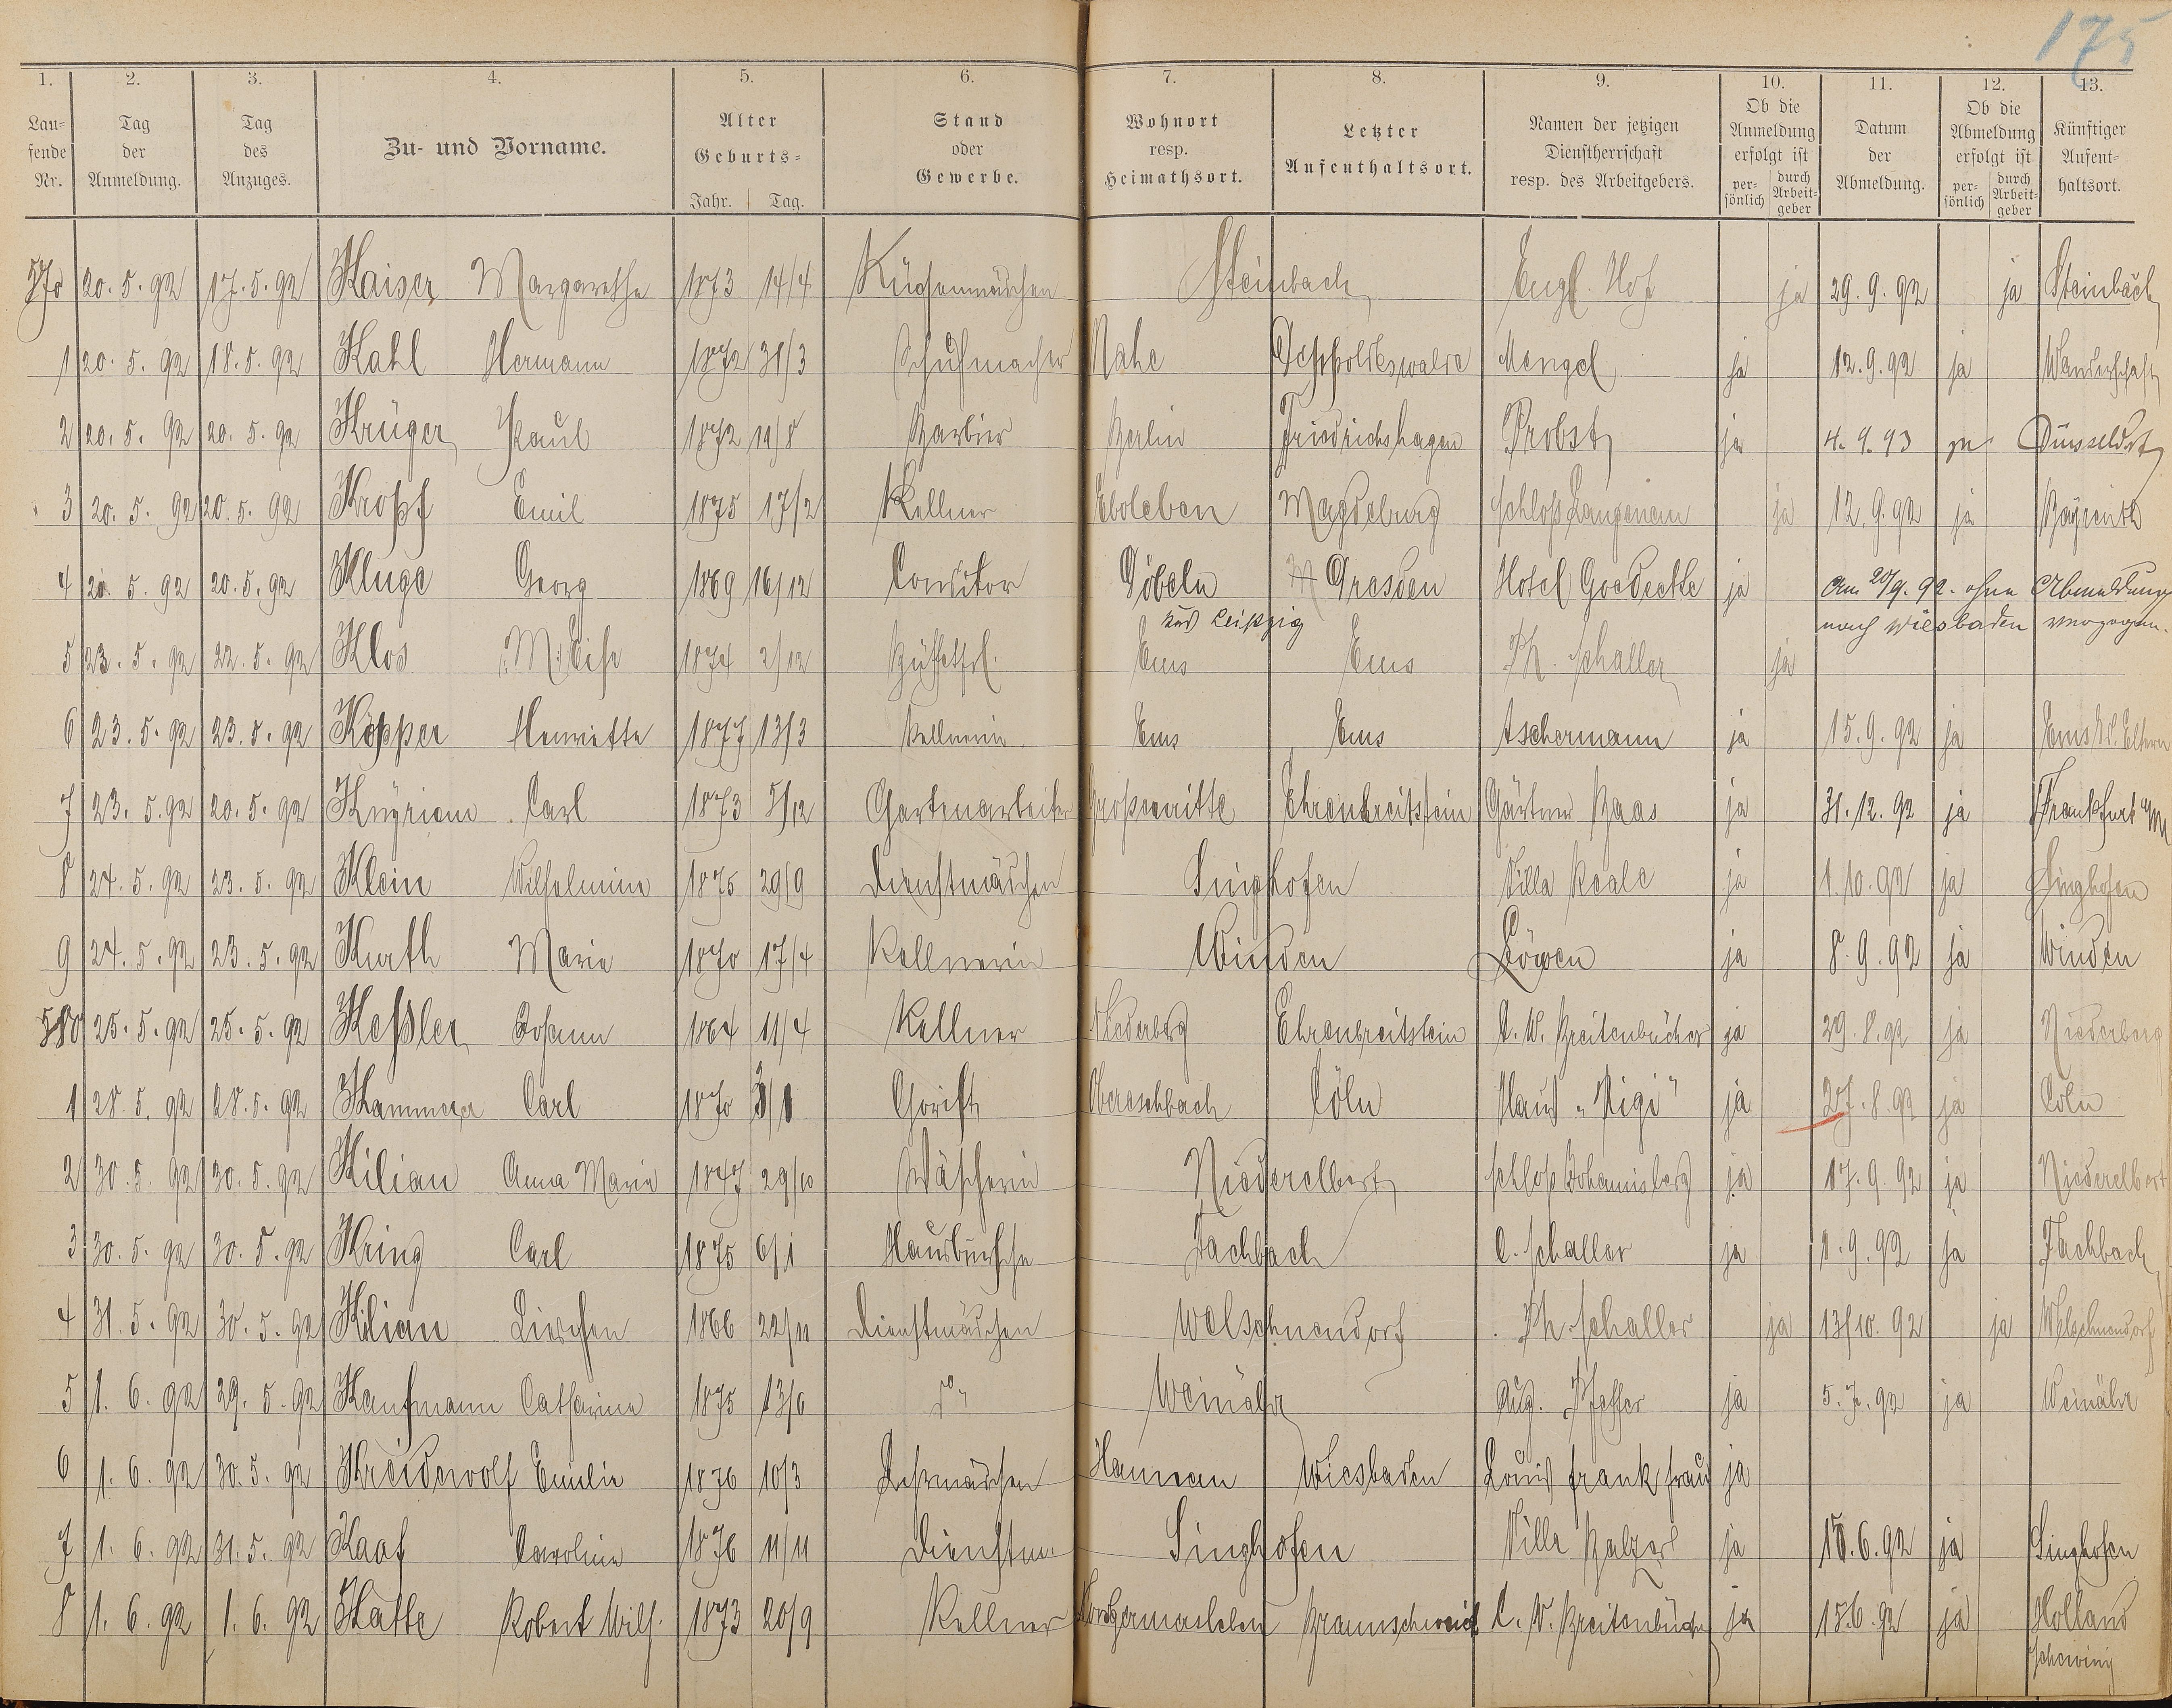 175
1. 2. 3. 4. 5. 6. 7. 8. 9. 10. 11. 12. 13.
Laufende Nr. | Tag der Anmeldung. | Tag des Anzuges. | Zu- und Vorname. | Alter Geburts- Jahr. Tag. | Stand oder Gewerbe. | Wohnort resp. Heimathsort. | Letzter Aufenthaltsort. | Namen der jetzigen Dienstherrschaft resp. des Arbeitgebers. | Ob die Anmeldung erfolgt ist persönlich durch Arbeitgeber | Datum der Abmeldung. | Ob die Abmeldung erfolgt ist persönlich durch Arbeitgeber | Künftiger Aufenthaltsort.
570 20.5.92 17.5.92 Kaiser Margarethe 1873 14/4 Küchenmädchen Steinbach Engl. Hof ja 29.9.92 ja Steinbach
1 20.5.92 18.5.92 Kahl Hermann 1872 31/3 Schuhmacher Nahe Mengel ja 12.9.92 ja Wanderschaft
2 20.5.92 20.5.92 Krüger Paul 1872 11/8 Barbier Berlin Friedrichshagen Probst ja 4.9.93 ja Düsseldorf
3 20.5.92 20.5.92 Kropf Emil 1875 17/2 Kellner Eboleben Magdeburg Schloß Langenau ja 12.9.92 ja Bayreuth
4 20.5.92 20.5.92 Kluge Georg 1869 16/12 Conditor Döbeln Dresden Hotel Goedecke ja Am 20/9.92. ohne Abmeldung
Leipzig nach Wiesbaden verzogen.
5 23.5.92 22.5.92 Klos Elise 1874 2/12 Büffetfrl. Ems Ems Ph. Schaller ja
6 23.5.92 23.5.92 Köpper Henriette 1877 13/3 Kellnerin Ems Ems Aschermann ja 15.9.92 ja Ems Eltern
7 23.5.92 20.5.92 Knyriem Carl 1873 5/12 Gartenarbeiter Grossenritte Ehrenbreitstein Gärtner Haas ja 31.12.92 ja Frankfurt a/M
8 24.5.92 23.5.92 Klein Wilhelmine 1875 29/9 Dienstmädchen Singhofen Villa Reale ja 1.10.92 ja Singhofen
9 24.5.92 23.5.92 Kurth Marie 1870 17/4 Kellnerin Winden Löwen ja 8.9.92 ja Winden
580 25.5.92 25.5.92 Keßler Johann 1864 11/4 Kellner Niederberg Ehrenbreitstein C. W. Breitenbücher ja 29.8.92 ja Niederberg
1 28.5.92 28.5.92 Kammerer Carl 1870 Obereschbach Cöln Haus "Rigi" ja 27.8.92 ja Cöln
2 30.5.92 30.5.92 Kilian Anna Maria 1847 29/10 Wäscherin Niederelbert Schloß Johannisberg ja 17.9.92 ja Niederelbert
3 30.5.92 30.5.92 Kring Carl 1875 6/1 Hausbursche Fachbach C. Schaller ja 1.9.92 ja Fachbach
4 31.5.92 30.5.92 Kilian Lieschen 1866 22/11 Dienstmädchen Welschnendorf Ph. Schaller ja 13/10.92 ja Welschnendorf
5 1.6.92 29.5.92 Kaufmann Catharina 1875 13/6 do Weinähr Aug. Pfeffer ja 5.7.92 ja Weinähr
6 1.6.92 30.5.92 Kreidewolf Emilie 1876 10/3 Lehrmädchen Hannau Wiesbaden Louis Frank Frau ja
7 1.6.92 31.5.92 Kaaf Caroline 1876 11/11 Dienstm. Singhofen Villa Balzer ja 18.6.92 ja Singhofen
8 1.6.92 1.6.92 Katte Robert Wilh. 1873 20/9 Kellner Braunschweig C. W. Breitenbücher ja 15.6.92 ja Holland